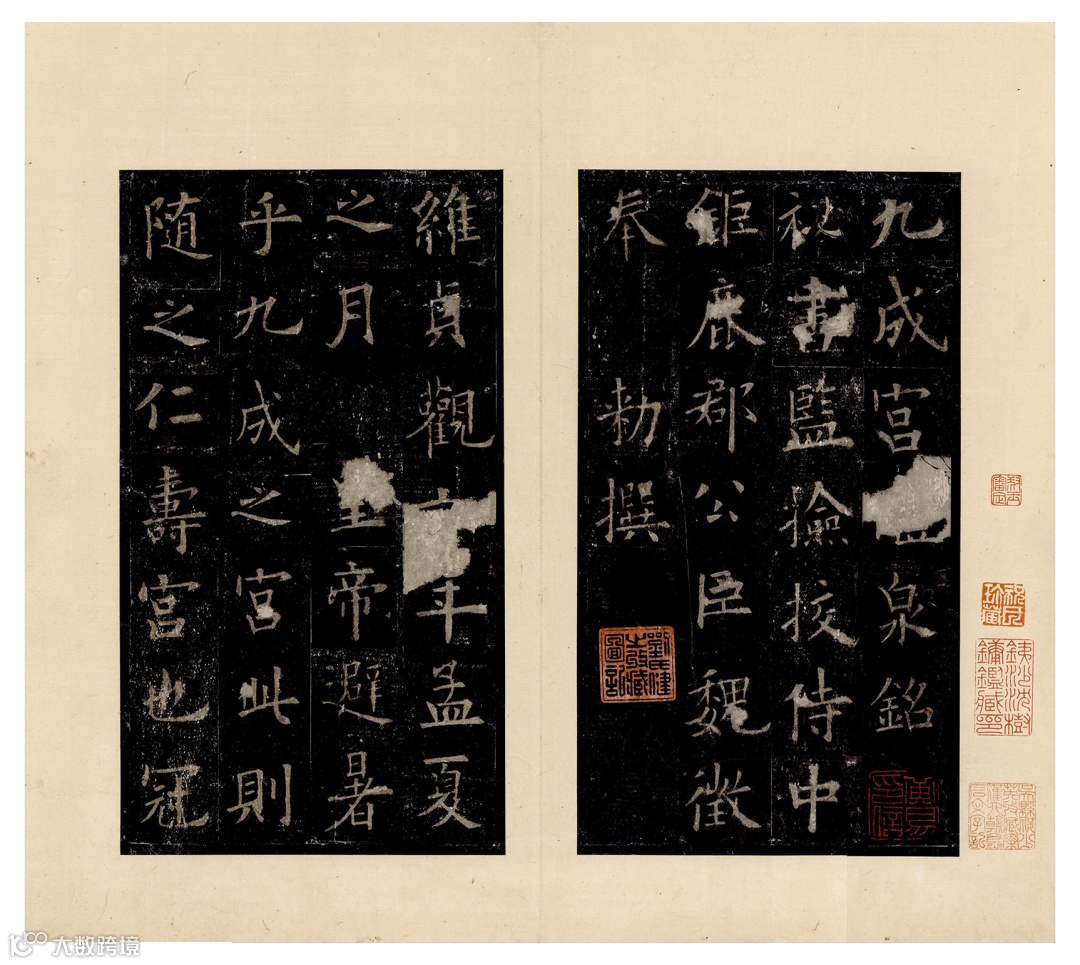 九成宮泉銘
祕書監撿挍侍中
鉅鹿郡公臣魏徵
奉 勑撰
維貞觀年孟夏
之月 皇帝避暑
乎九成之宮此則
随之仁壽宮也冠
大数跨境